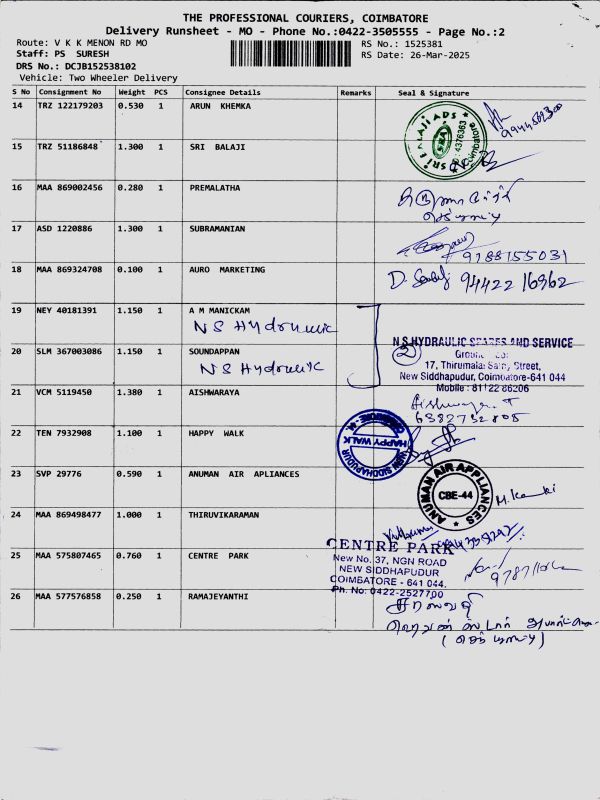 THE PROFESSIONAL COURIERS, COIMBATORE
Delivery Runsheet - MO - Phone No.:0422-3505555 - Page No.:2
Route: V K K MENON RD MO
RS No.: 1525381
Staff: PS SURESH
RS Date: 26-Mar-2025
DRS No.: DCJB152538102
Vehicle: Two Wheeler Delivery
S No Consignment No Weight PCS Consignee Details Remarks Seal & Signature
14 TRZ 122179203 0.530 1 ARUN KHEMKA
15 TRZ 51186848 1.300 1 SRI BALAJI
SRI BALAJI ADS
Coimbatore
16 MAA 869002456 0.280 1 PREMALATHA
17 ASD 1220886 1.300 1 SUBRAMANIAN
9788155031
18 MAA 869324708 0.100 1 AURO MARKETING
94422 16962
19 NEY 40181391 1.150 1 A M MANICKAM
N S Hydraulic
20 SLM 367003086 1.150 1 SOUNDAPPAN
N S Hydraulic
N S HYDRAULIC SPARES AND SERVICE
2
17, Thirumalai Samy Street,
New Siddhapudur, Coimbatore-641 044
Mobile : 81122 86206
21 VCM 5119450 1.380 1 AISHWARAYA
Aishwarya. T
6382732808
22 TEN 7932908 1.100 1 HAPPY WALK
HAPPY WALK
NEW SIDDHAPUDUR
23 SVP 29776 0.590 1 ANUMAN AIR APLIANCES
ANUMAN AIR APPLIANCES
CBE-44
24 MAA 869498477 1.000 1 THIRUVIKARAMAN
25 MAA 575807465 0.760 1 CENTRE PARK
CENTRE PARK
New No. 37, NGN ROAD
NEW SIDDHAPUDUR
COIMBATORE - 641 044.
Ph. No: 0422-2527700
26 MAA 577576858 0.250 1 RAMAJEYANTHI